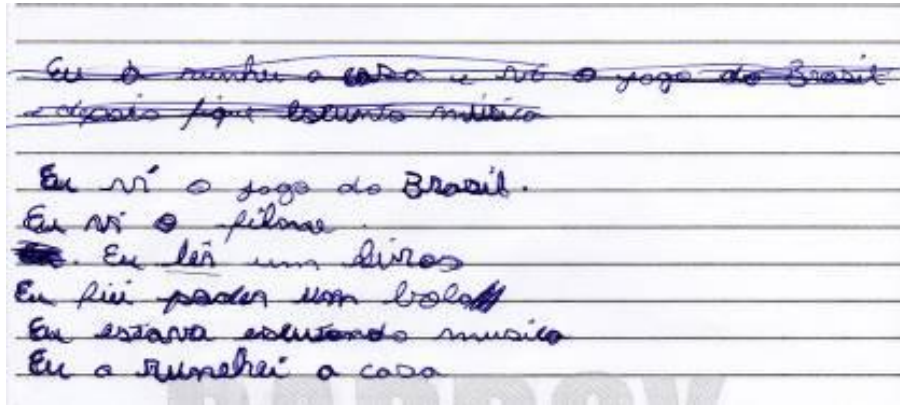 Eu a runhei a casa e vi o jogo do Brasil
e depois fique escunto música
Eu ví o jogo do Brasil.
Eu vi o filme.
. Eu lêr um livros
Eu fiu pader um bolo
Eu estava escutando musica
Eu a runehei a casa